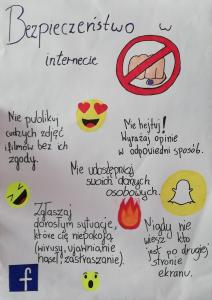 Bezpieczeństwo w
internecie
Nie publikuj
cudzych zdjęć
i filmów bez ich
zgody.
Nie hejtuj!
Wyrażaj opinie
w odpowiedni sposób.
Nie udostępniaj
swoich danych
osobowych.
Zgłaszaj
dorosłym sytuacje,
które cię niepokoją
(wirusy, ujawnianie
haseł, zastraszanie).
Nigdy nie
wiesz kto
jest po drugiej
stronie
ekranu.
f